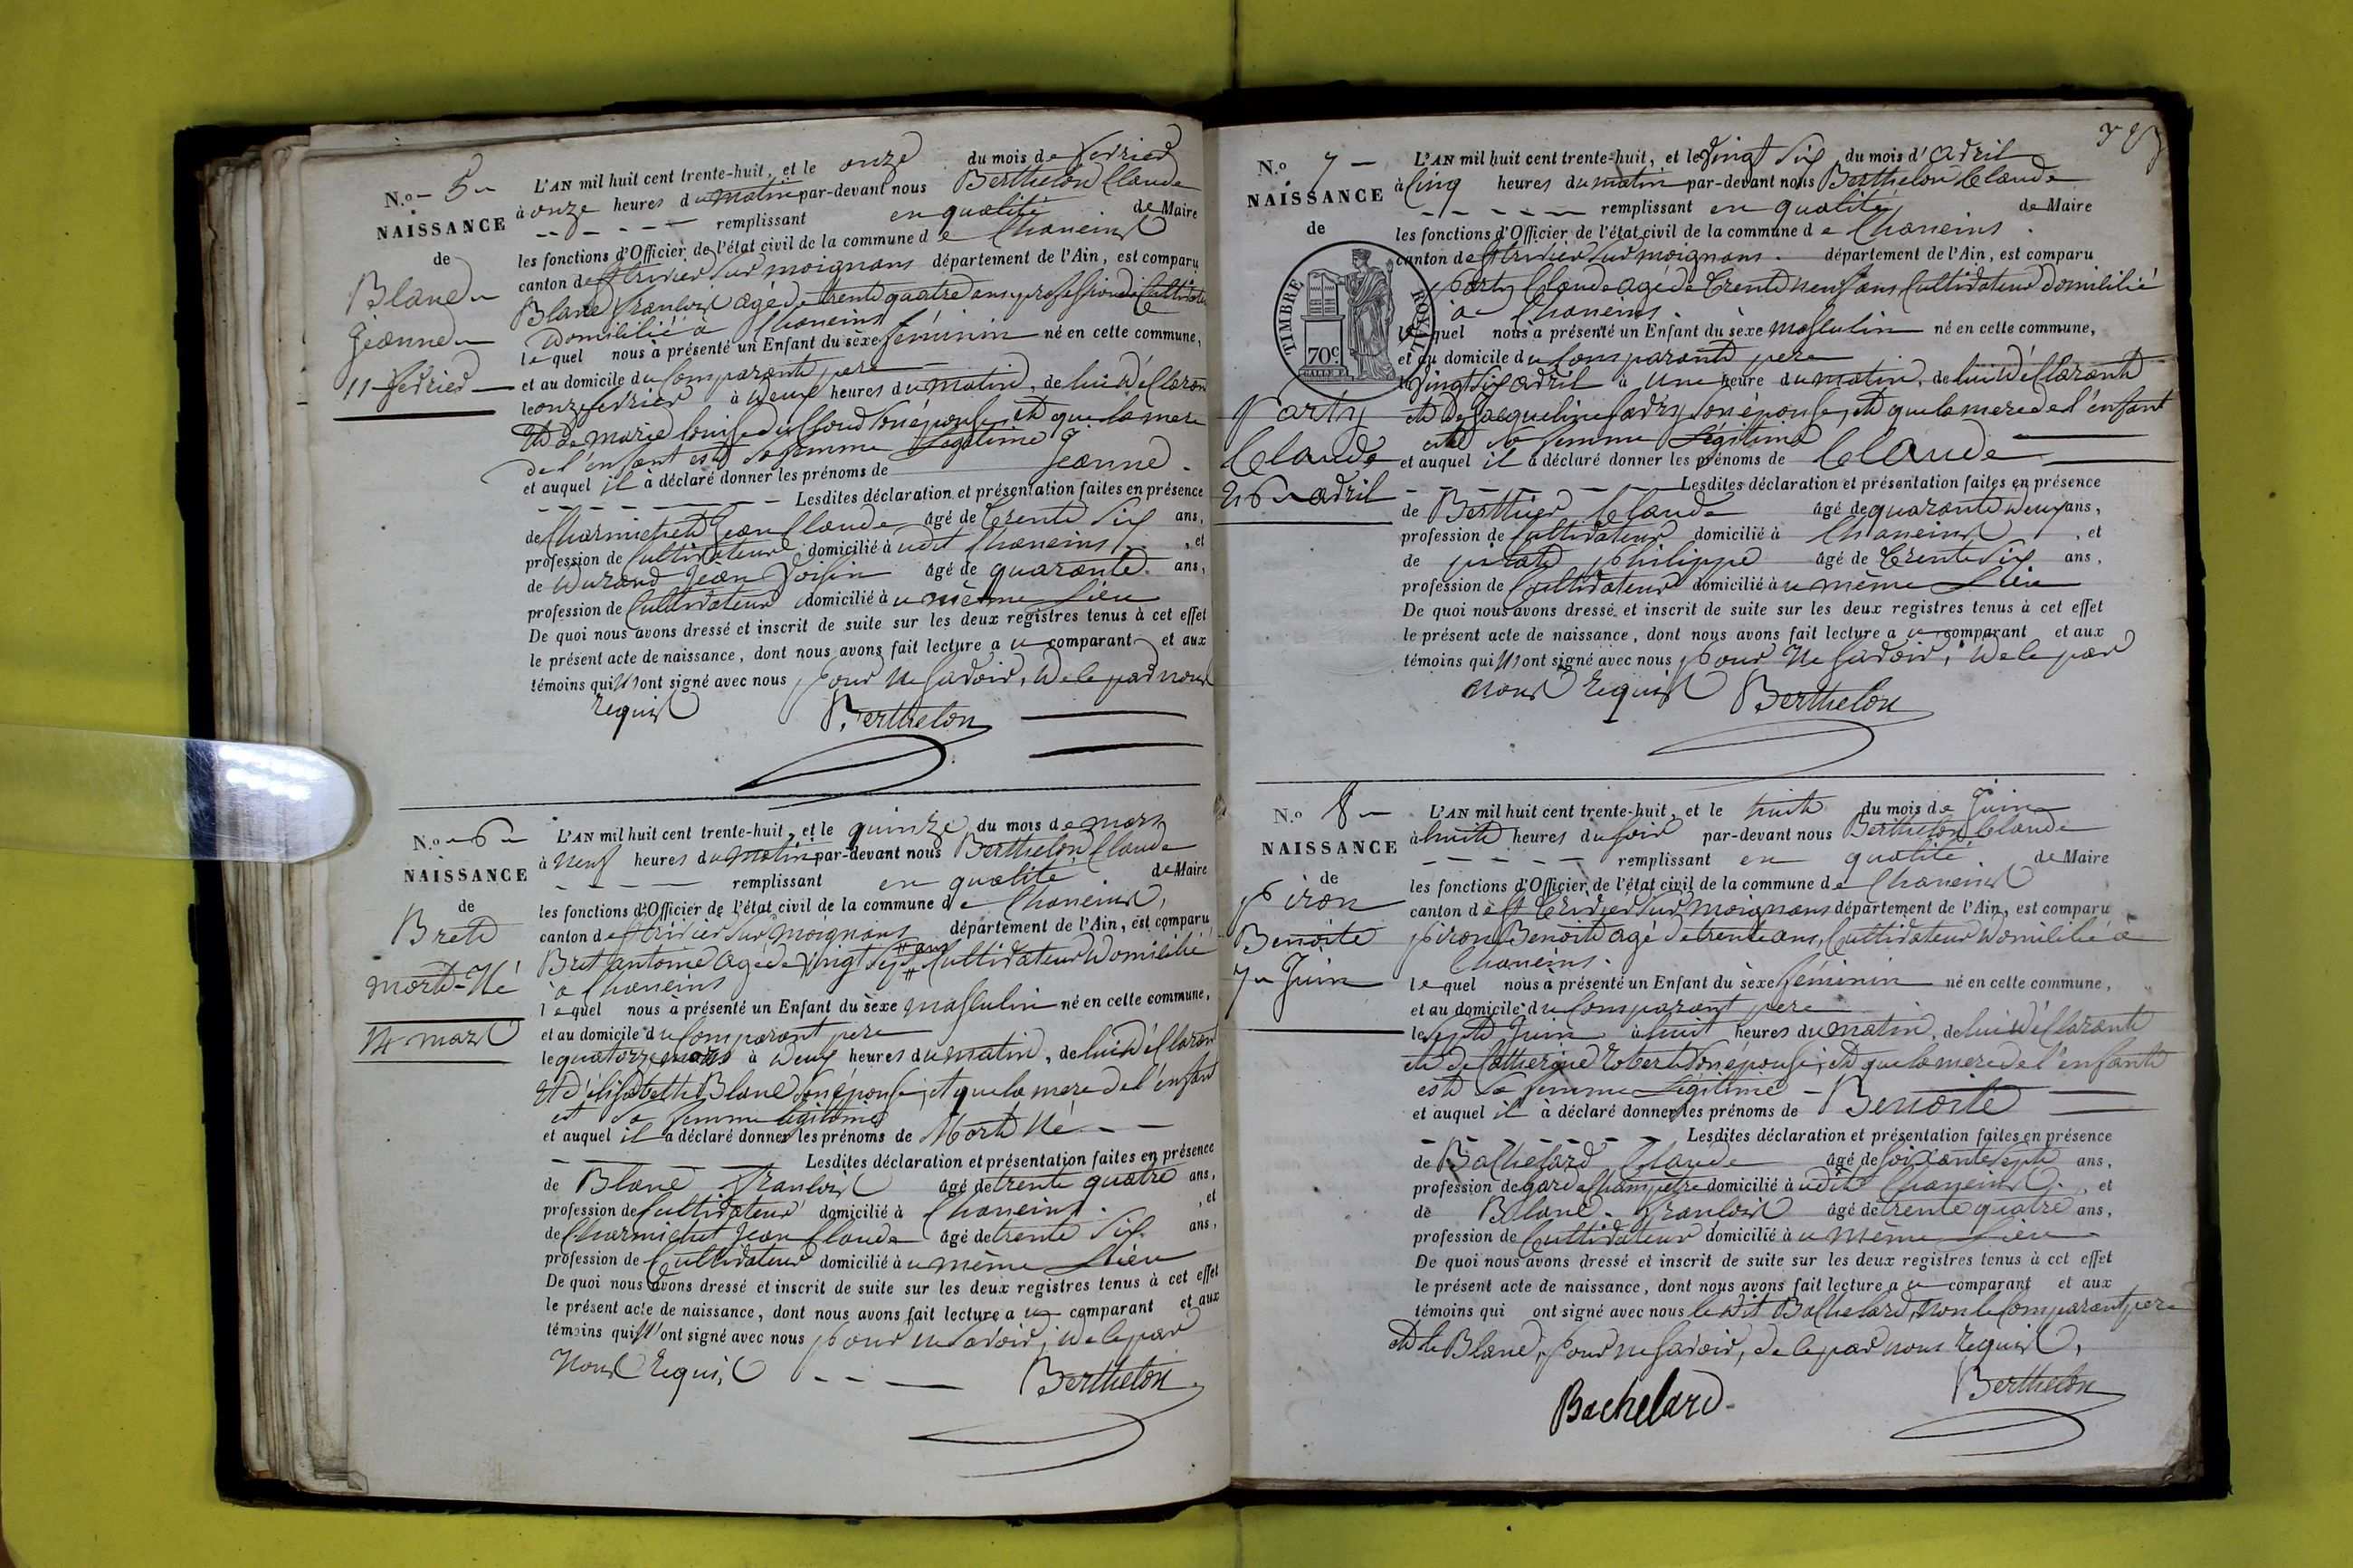 N.o 5
NAISSANCE
de
Blanc
Jeanne
11 fevrier
L'AN mil huit cent trente-huit, et le onze du mois de fevrier
à onze heures du matin par-devant nous Berthelon Claude
remplissant en qualité de Maire
les fonctions d'Officier de l'état civil de la commune de Chaneins
canton de St trivier sur moignans département de l'Ain, est comparu
Blanc francois agé de trente quatre ans, profession de Cultivateur
domicilié à Chaneins
lequel nous à présenté un Enfant du sèxe féminin né en cette commune,
et au domicile du Comparant pere
le onze fevrier à deux heures du matin, de lui déclarant
et de marie louise son épouse, et que la mere
de l'enfant est sa femme Légitime
et auquel il à déclaré donner les prénoms de Jeanne
Lesdites déclaration et présentation faites en présence
de Charmichet Jean Claude âgé de trente Six ans,
profession de Cultivateur domicilié à udit Chaneins, et
de Durand Jean Voisin âgé de quarante ans,
profession de Cultivateur domicilié à u même Lieu
De quoi nous avons dressé et inscrit de suite sur les deux registres tenus à cet effet
le présent acte de naissance, dont nous avons fait lecture a u comparant et aux
témoins qui n'ont signé avec nous pour ne savoir, de le par nous
Requis Berthelon
N.o 6
NAISSANCE
de
Bret
mort-Né
14 mars
L'AN mil huit cent trente-huit, et le quinze du mois de mars
à neuf heures du matin par-devant nous Berthelon Claude
remplissant en qualité de Maire
les fonctions d'Officier de l'état civil de la commune de Chaneins,
canton de St trivier sur moignans département de l'Ain, est comparu
Bret antoine agé de vingt Sept ans Cultivateur Domicilié
à Chaneins
lequel nous à présenté un Enfant du sèxe masculin né en cette commune,
et au domicile du Comparant pere
le quatorze mars à deux heures du matin, de lui déclarant
et d'élisabeth Blanc son épouse, et que la mere de l'enfant
est sa femme légitime
et auquel il a déclaré donner les prénoms de Mort Né
Lesdites déclaration et présentation faites en présence
de Blanc francois âgé de trente quatre ans,
profession de Cultivateur domicilié à Chaneins, et
de Charmichet Jean Claude âgé de trente Six ans,
profession de Cultivateur domicilié à u même Lieu
De quoi nous avons dressé et inscrit de suite sur les deux registres tenus à cet effet
le présent acte de naissance, dont nous avons fait lecture a u comparant et aux
témoins qui n'ont signé avec nous pour ne savoir, de le par
Nous Requis Berthelon
N.o 7
NAISSANCE
de
TIMBRE ROYAL
70c
Party
Claude
26 avril
L'AN mil huit cent trente-huit, et le vingt Six du mois d'avril
à Cinq heures du matin par-devant nous Berthelon Claude
remplissant en qualité de Maire
les fonctions d'Officier de l'état civil de la commune de Chaneins
canton de St trivier sur moignans département de l'Ain, est comparu
Party Claude agé de trente neuf ans, Cultivateur domicilié
à Chaneins
lequel nous à présenté un Enfant du sèxe masculin né en cette commune,
et au domicile du Comparant pere
le vingt Six avril à une heure du matin, de lui déclarant
et de Jacqueline son épouse, et que la mere de l'enfant
est sa femme Légitime
et auquel il à déclaré donner les prénoms de Claude
Lesdites déclaration et présentation faites en présence
de Berthier Claude âgé de quarante deux ans,
profession de Cultivateur domicilié à Chaneins, et
de philippe âgé de trente Six ans,
profession de Cultivateur domicilié à u même Lieu
De quoi nous avons dressé et inscrit de suite sur les deux registres tenus à cet effet
le présent acte de naissance, dont nous avons fait lecture a u comparant et aux
témoins qui n'ont signé avec nous pour ne savoir, de le par
nous Requis Berthelon
N.o 8
NAISSANCE
de
Piron
Benoite
7 Juin
L'AN mil huit cent trente-huit, et le huit du mois de Juin
à huit heures du soir par-devant nous Berthelon Claude
remplissant en qualité de Maire
les fonctions d'Officier de l'état civil de la commune de Chaneins
canton de St trivier sur moignans département de l'Ain, est comparu
piron Benoit agé de trente ans, Cultivateur domicilié à
Chaneins.
lequel nous à présenté un Enfant du sèxe féminin né en cette commune,
et au domicile du Comparant pere
le sept Juin à huit heures du matin, de lui déclarant
et de Catherine Robert son épouse, et que la mere de l'enfant
est sa femme Légitime
et auquel il à déclaré donner les prénoms de Benoite
Lesdites déclaration et présentation faites en présence
de Bachelard Claude âgé de soixante sept ans,
profession de garde champetre domicilié à udit Chaneins, et
de Blanc francois âgé de trente quatre ans,
profession de Cultivateur domicilié à u même Lieu
De quoi nous avons dressé et inscrit de suite sur les deux registres tenus à cet effet
le présent acte de naissance, dont nous avons fait lecture a u comparant et aux
témoins qui ont signé avec nous le dit Bachelard, non le Comparant pere
et le Blanc, pour ne savoir, de le par nous Requis,
Bachelard Berthelon